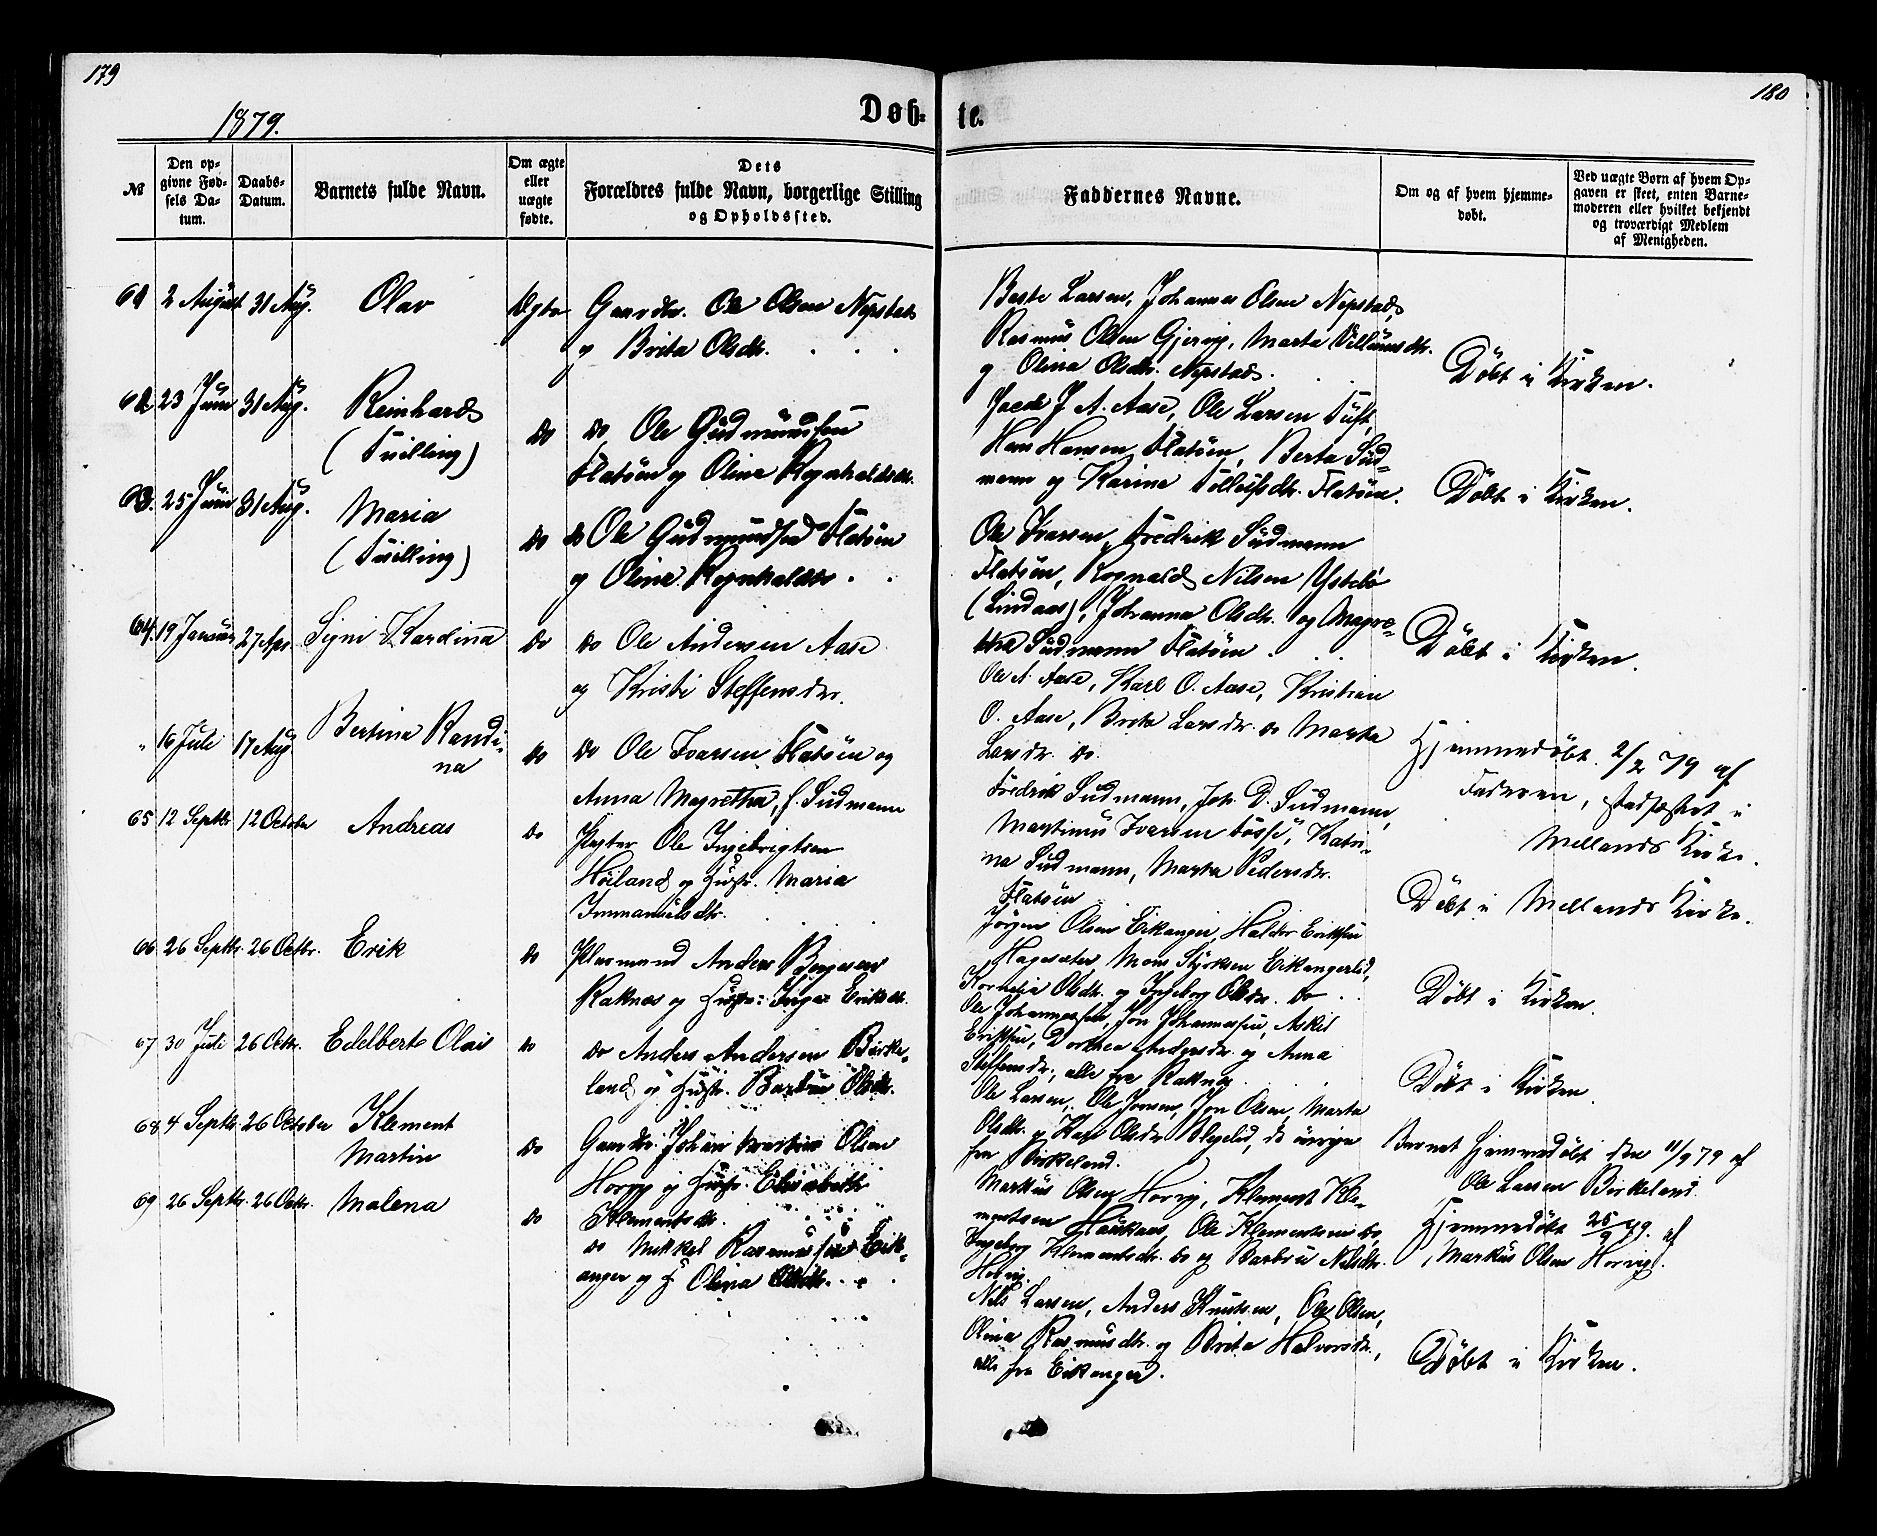 179
1879.
Døb-
№
Den op-
givne Fød-
sels Da-
tum.
Daabs-
Datum.
Barnets fulde Navn.
Om ægte
eller
uægte
fødte.
Dets
Forældres fulde Navn, borgerlige Stilling
og Opholdssted.
61 2 August 31 Aug. Olav Ægte Gaardbr. Ole Olsen Nepstad
og Brita Olsdtr.
62 23 Juni 31 Aug. Reinhard
(Tvilling) do do Ole Gudmundsen
Flatøen og Oline Rognhaldsdtr.
63. 25 Juni 31 Aug. Maria
(Tvilling) do do Ole Gudmundsen Flatøen
og Oline Rognhaldsdtr.
64. 19 Januar 27 Apr. Signi Kardina do do Ole Andersen Aase
og Kristi Steffensdtr.
" 16 Juli 17 Aug Bertina Randi-
na do do Ole Ivarsen Flatøen og
Anna Magretha, f. Sudmann
65 12 Septbr 12 October Andreas do Ole Ingebrigtsen
Høiland og Hustr. Maria
Immanuelsdtr.
66 26 Septbr. 26 Octbr. Erik do Plasmand Anders Børgesen
Raknes og Hustr: Inga Eriksdtr.
67 30 Juli 26 Octbr. Edelbert Olai do do Anders Andersen Birke-
land og Hustr. Barbru Olsdtr.
68 4 Septbr. 26 October Klement
Martin do Gaardbr. Johan Martin Olsen
Horvig og Hustr. Elisabeth
Klementsdtr.
69 26 Septbr. 26 Octbr. Malena do do Mikkel Rasmussen Eik-
anger og H. Olina Olsdtr.
180
te.
Faddernes Navne.
Om og af hvem hjemme-
døbt.
Ved uægte Børn af hvem Op-
gaven er skeet, enten Barne-
moderen eller hvilket bekjendt
og troværdigt Medlem
af Menigheden.
Larsen, Johannes Olsen Nepstad,
Rasmus Olsen Gjervig, Marta Villumsdtr.
og Olina Olsdtr. Nepstad.
Døbt i Kirken.
J. A. Aase, Ole Larsen Tuft,
Hans Hansen Flatøen, Berta Sud-
mann og Karina Tollefsdtr. Flatøen.
Døbt i Kirken.
Ole Ivarsen, Fredrik Sudmann
Flatøen, Rognald Nilsen Ystebø
(Lindaas), Johanna Olsdtr. og Magre-
tha Sudmann Flatøen.
Døbt i Kirken.
Ole A. Aase, Karl O. Aase, Kristian
O. Aase, Brita Larsdtr. do Marta
Larsdtr. do.
Hjemmedøbt 2/2 79 af
Faderen, stadfæstet i
Mellands Kirke.
Fredrik Sudmann, Joh. D. Sudmann,
Martinus Ivarsen Fosse, Katri-
na Sudmann, Marta Pedersdtr.
Flatøen
Døbt i Mellands Kirke.
Jørgen Olsen Eikanger, Haldor Eriksen
Hagesæter, Mons Styrksen Eikangerlid,
Kornelia Olsdtr. og Ingeborg Olsdtr. do
Døbt i Kirken.
Ole Johannessen, Jon Johannessen, Askil
Eriksen, Dorthea Andersdtr. og Anna
Steffensdtr., alle fra Raknes
Døbt i Kirken.
Ole Larsen, Ole Jonsen, Jon Olsen, Marta
Olsdtr. og Kari Olsdtr. de øvrige
fra Birkeland.
Barnet hjemmedøbt den 11/9 79 af
Ole Larsen Birkeland.
Markus Olsen Horvig, Klement Kle-
mentsen Haukaas, Ole Klementsen do,
Ingeborg Klementsdtr. do og Barbru Nilsdtr.
Horvig.
Hjemmedøbt 25/9 79. af
Markus Olsen Horvig.
Nils Larsen, Anders Knutsen, Ole Olsen,
Olina Rasmusdtr. og Brita Halvorsdtr.,
alle fra Eikanger.
Døbt i Kirken.